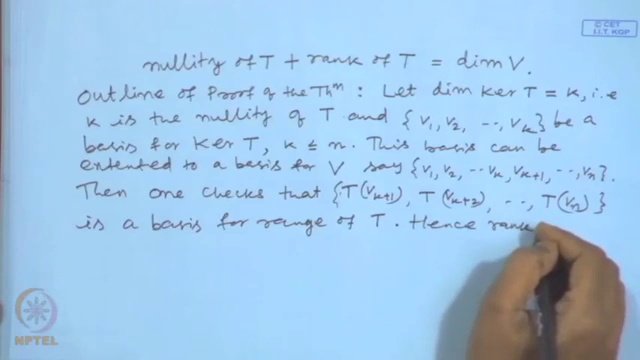 © CET
I.I.T. KGP
nullity of T + rank of T = dim V.
Outline of Proof of the Thm : Let dim Ker T = k, i.e
k is the nullity of T and {v1, v2, ..., vk} be a
basis for Ker T, k ≤ n. This basis can be
extented to a basis for V say {v1, v2, ... vk, vk+1, ..., vn}.
Then one checks that {T(vk+1), T(vk+2), ..., T(vn)}
is a basis for range of T. Hence rank
NPTEL